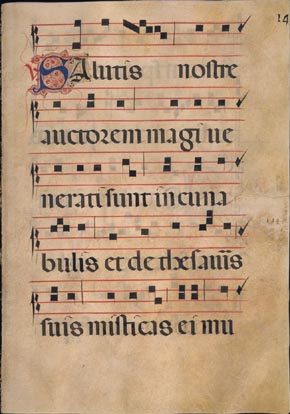 14
Salutis nostre
auctorem magi ue
nerati sunt in cuna
bulis et de thesauris
suis misticas ei mu